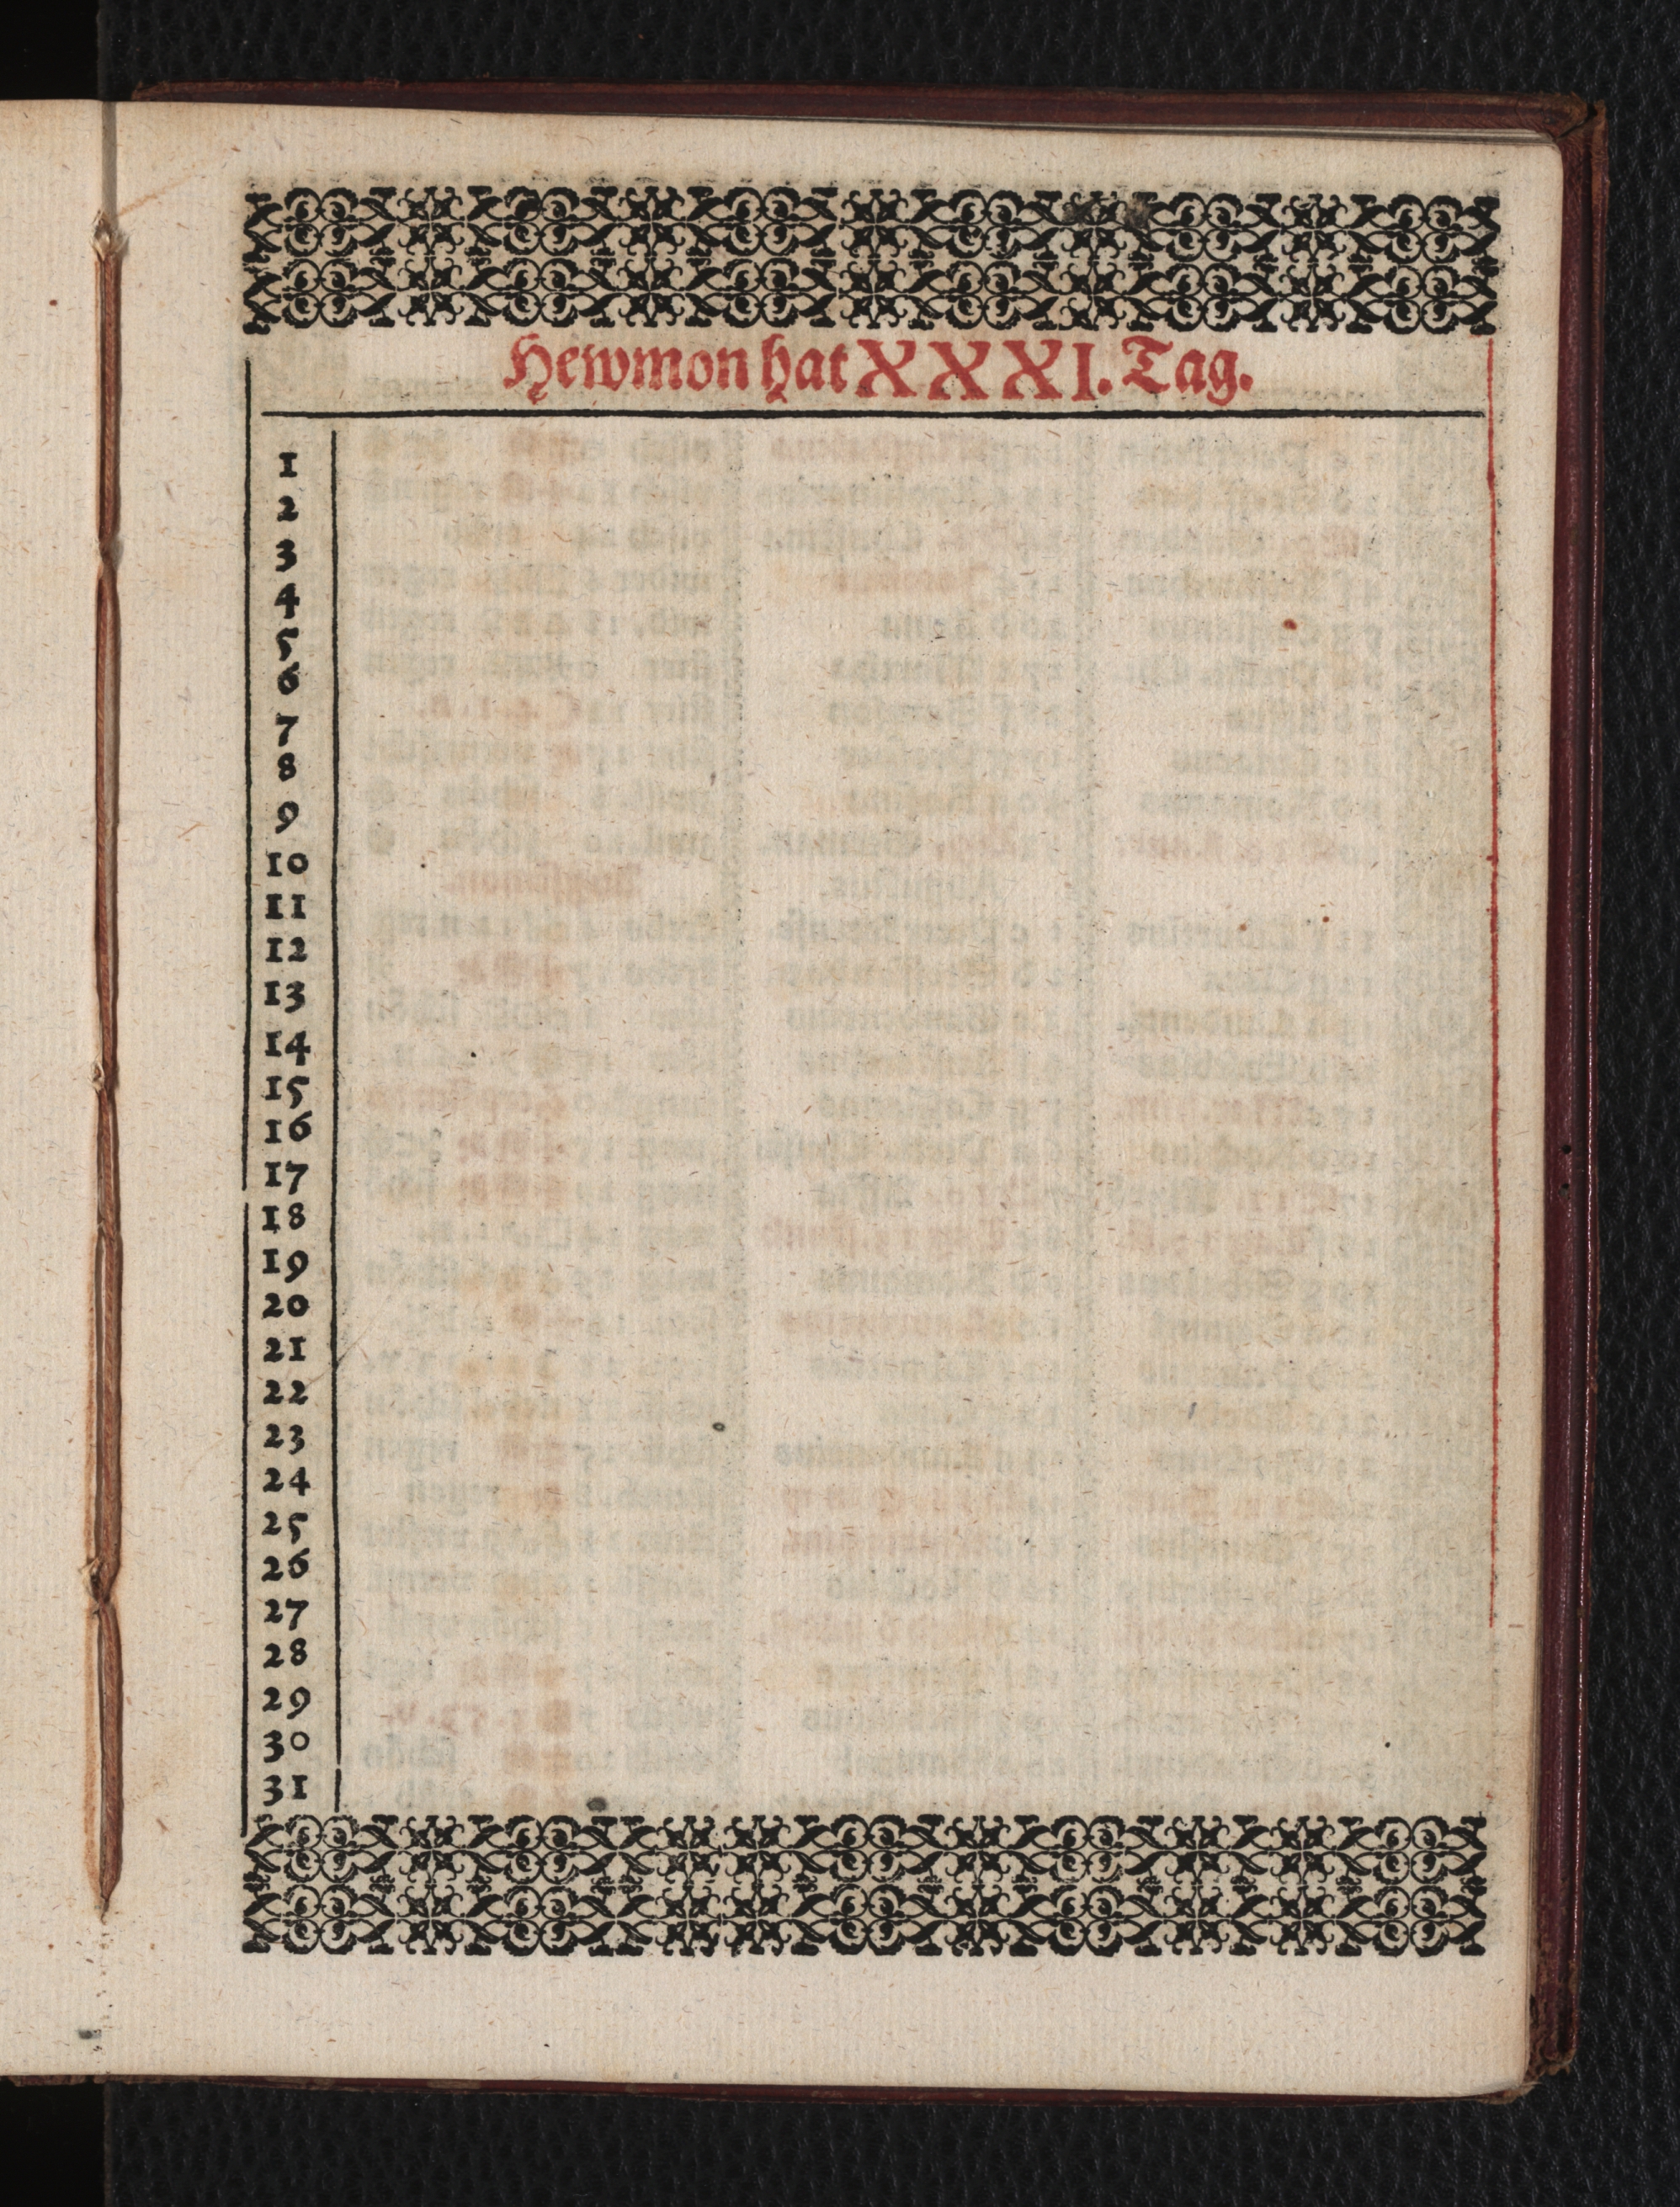 Hewmon hat XXXI. Tag.
1
2
3
4
5
6
7
8
9
10
11
12
13
14
15
16
17
18
19
20
21
22
23
24
25
26
27
28
29
30
31